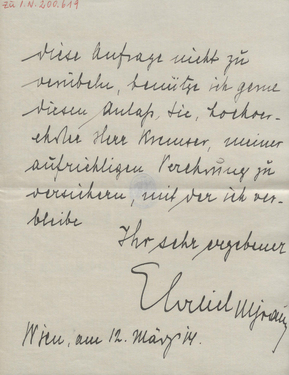 zu I.N. 200.619
diese Anfrage nicht zu
verübeln, benütze ich gerne
diesen Anlaß, Sie, hochver-
ehrter Herr Kremser, meiner
aufrichtigen Verehrung zu
versichern, mit der ich ver-
bleibe
Ihr sehr ergebener
Wien, am 12. März 14.